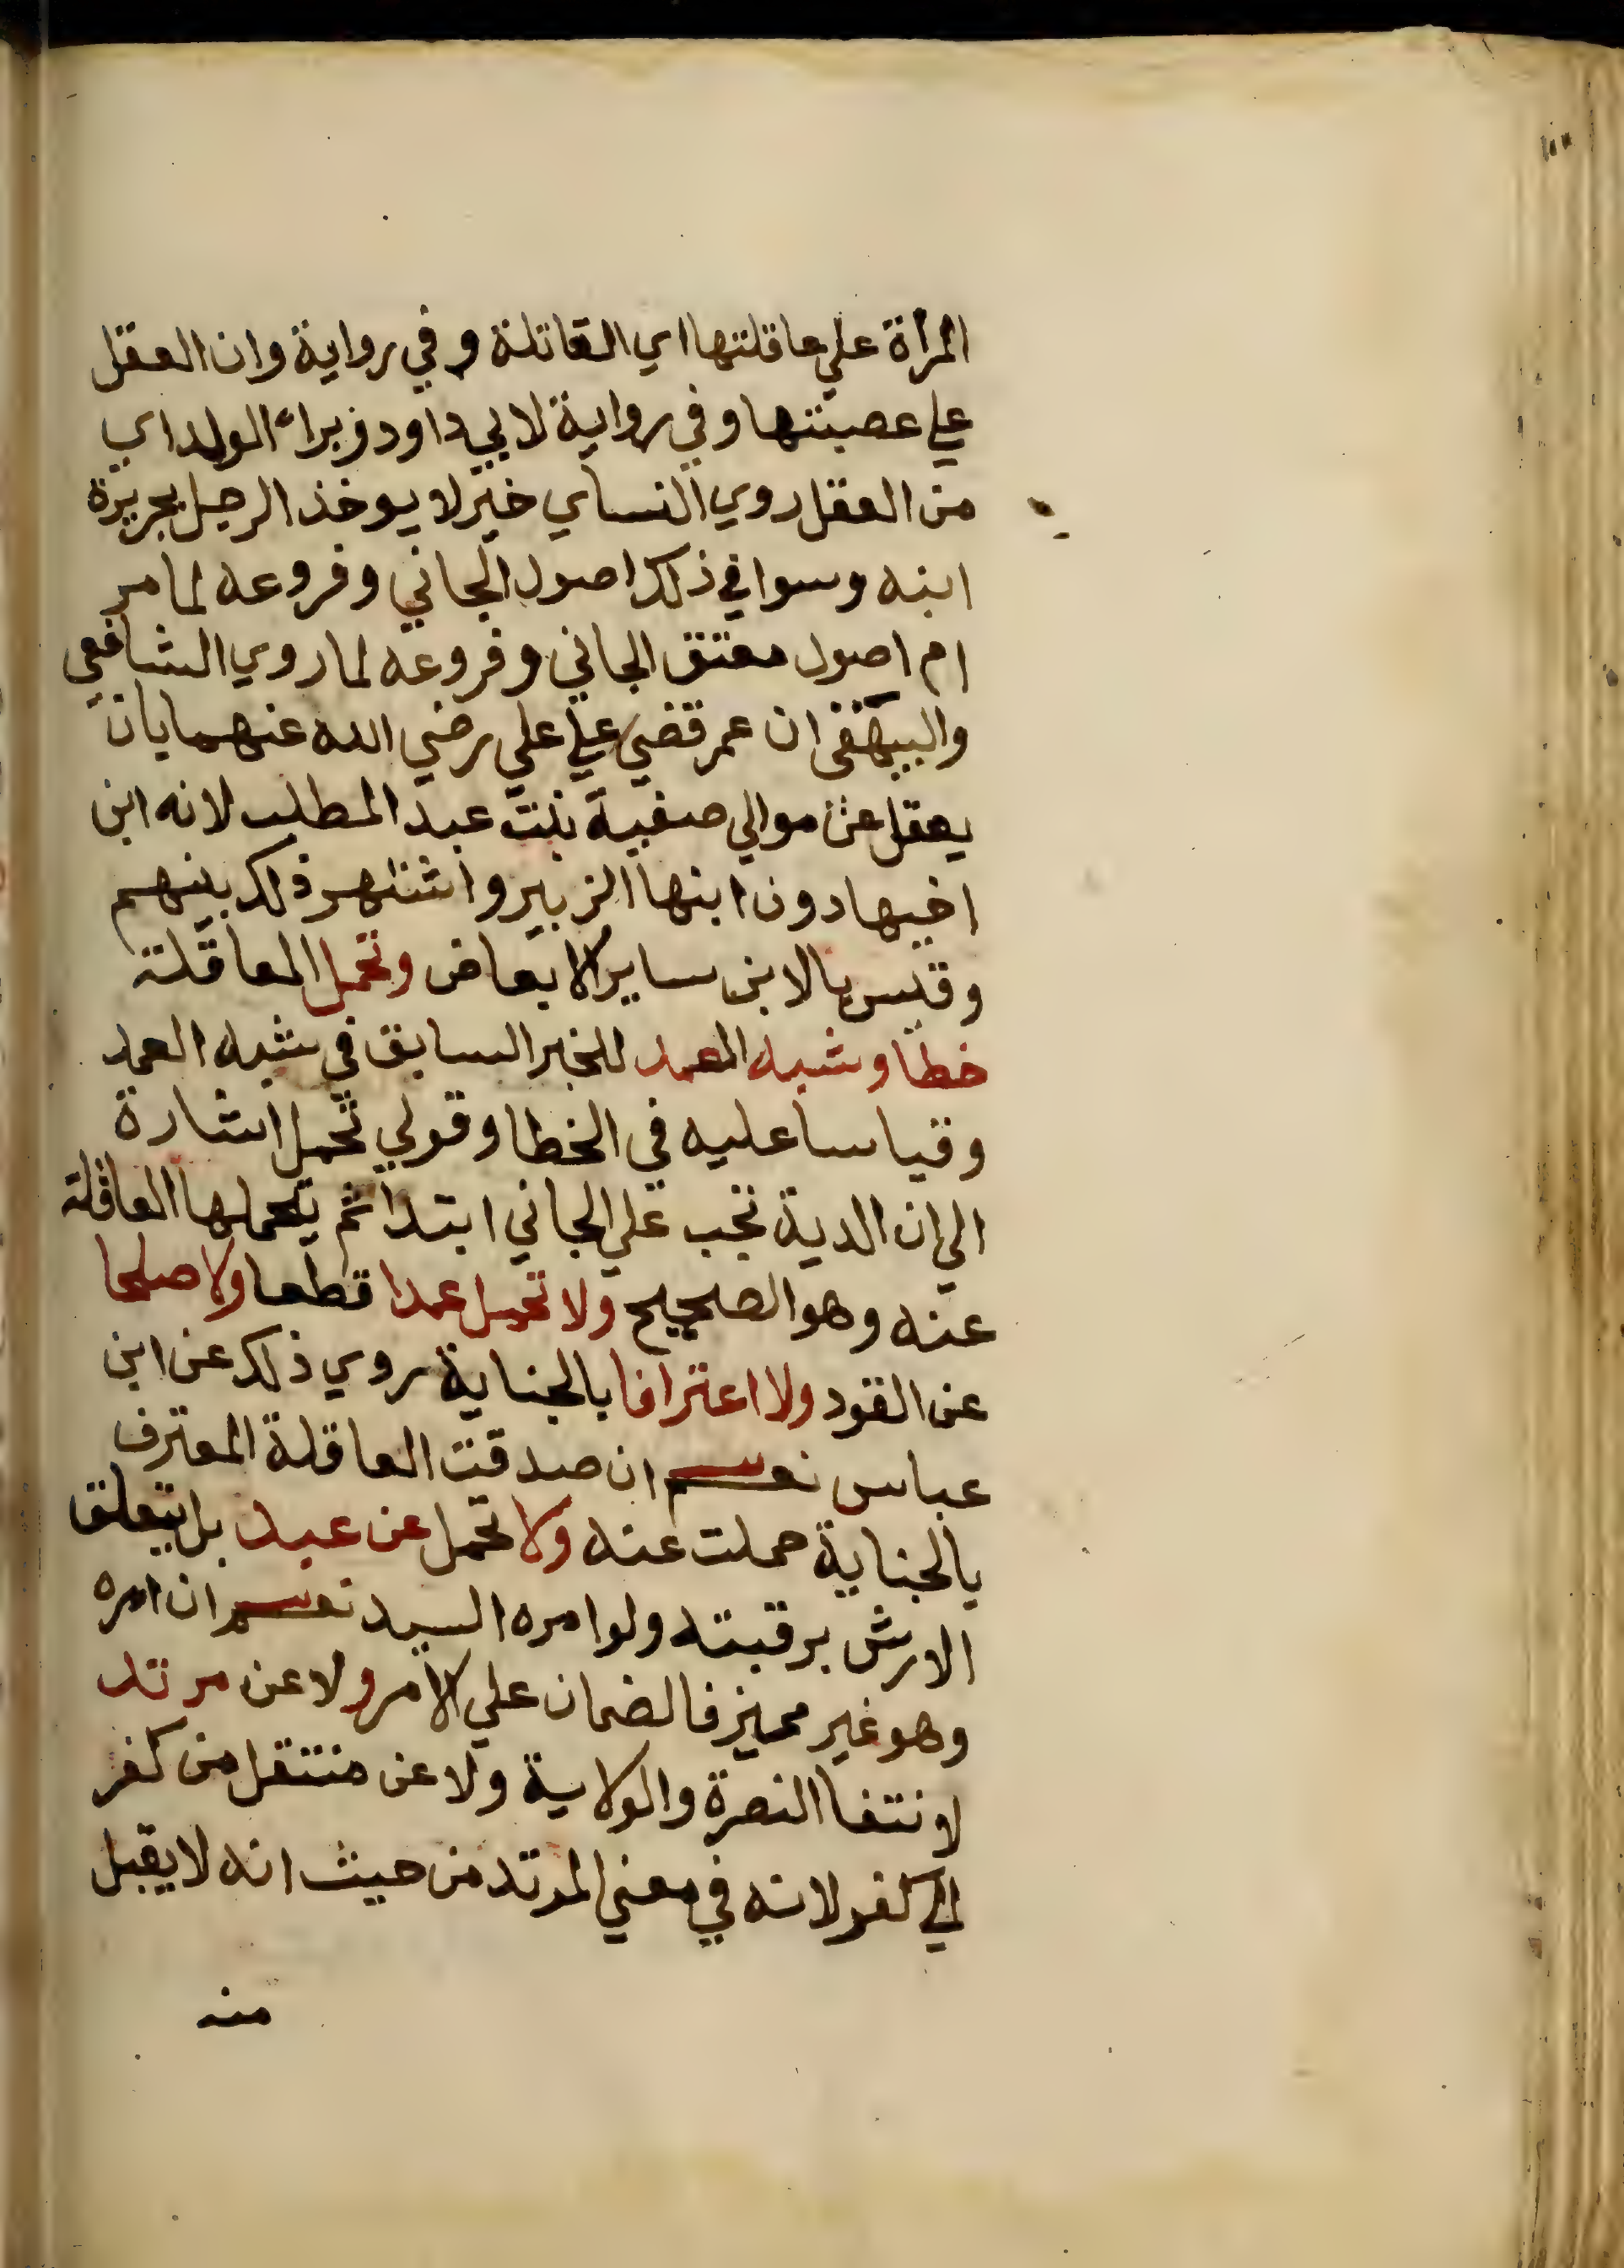 المرأة علي عاقلتها اي القاتلة وفي رواية وان العقل
علي عصبتها وفي رواية لابي داود وبراء الولد اي
من العقل روي النساي خبر لا يوخذ الرجل بجريرة
ابنه وسوا في ذلك اصول الجاني وفروعه لما مر
ام اصول معتق الجاني وفروعه لما روي الشافعي
والبيهقي ان عمر قضي علي علي رضي الله عنهما بان
يعقل عن موالي صفية بنت عبد المطلب لانه ابن
اخيها دون ابنها الزبير واشتهر ذلك بينهم
وقيس بالابن ساير الابعاض وتحمل العاقلة
خطا وشبه العمد للخبر السابق في شبه العمد
وقياسا عليه في الخطا وقولي تحمل اشارة
الي ان الدية تجب علي الجاني ابتدا ثم يتحملها العاقلة
عنه وهو الصحيح ولا تحمل عمدا قطعا ولا صلحا
عن القود ولا اعترافا بالجناية روي ذلك عن ابن
عباس نعم ان صدقت العاقلة المعترف
بالجناية حملت عنه ولا تحمل عن عبد بل يتعلق
الارش برقبته ولو امره السيد نعم ان امره
وهو غير مميز فالضمان علي الآمر ولا عن مرتد
لانتفا النصرة والولاية ولا عن منتقل من كفر
الي كفر لانه في معني المرتد من حيث انه لا يقبل
منه